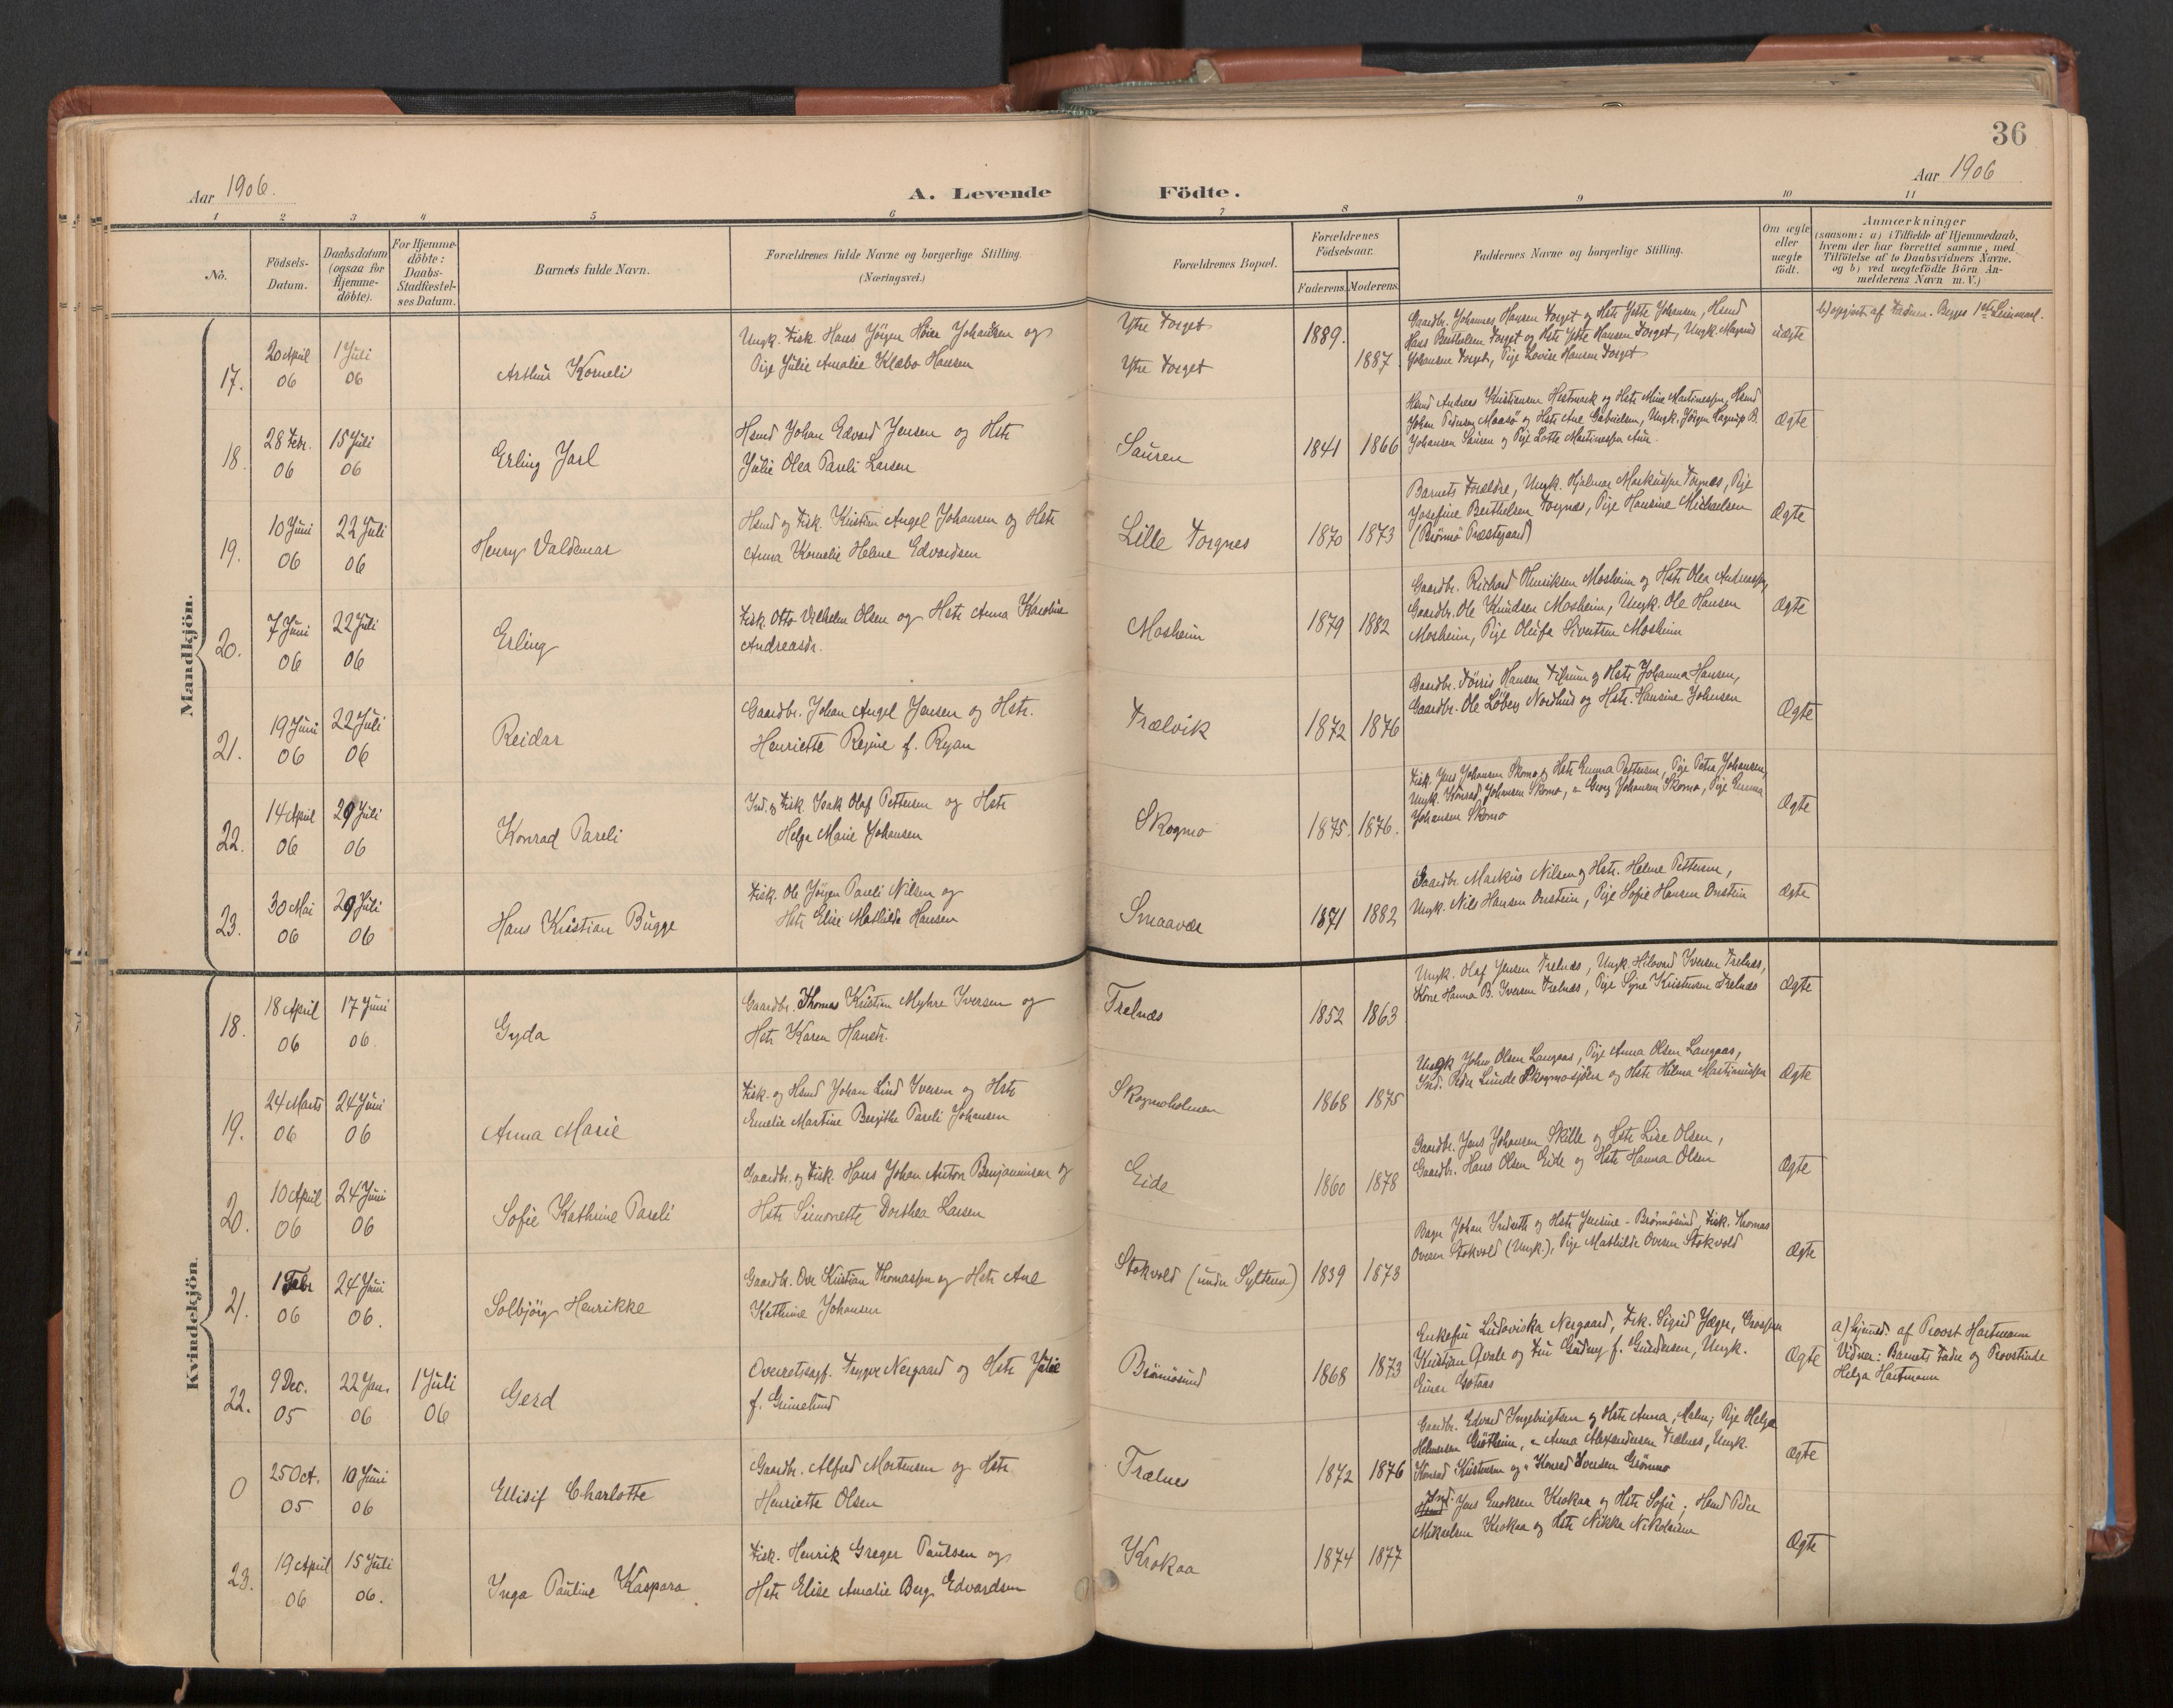 36
Aar 1906.
A. Levende Födte.
Aar 1906
1 2 3 4 5 6 7 8 9 10 11
No.
Födsels-
Datum.
Daabsdatum
(ogsaa for
Hjemme-
döbte).
For Hjemme-
döbte:
Daabs-
Stadfæstel-
ses Datum.
Barnets fulde Navn.
Forældrenes fulde Navne og borgerlige Stilling.
(Næringsvei.)
Forældrenes Bopæl.
Forældrenes
Födselsaar.
Faderens. Moderens.
Faddernes Navne og borgerlige Stilling.
Om ægte
eller
uægte
födt.
Anmærkninger
(saasom: a) i Tilfælde af Hjemmedaab,
hvem der har forrettet samme, med
Tilföielse af to Daabsvidners Navne.
og b) ved uægtefödte Börn An-
melderens Navn m. V.)
Mandkjön.
17.
20 April
06
1 Juli
06
Arthur Korneli
Ungk. Fisk. Hans Jörgen Höier Johansen og
Pige Julie Amalie Klæbo Hansen
Ytre Torget
Ytre Torget
1889.
1887.
Gaardbr. Johannes Hansen Torget og Hstr Jette Johansen, Hsmd
Hans Berthelsen Torget og Hstr Jette Hansen Torget, Ungk. Magnus
Johansen Torget, Pige Lovise Hansen Torget
uægte
b) opgivet af Faderen. Begges 1ste Leiermaal.
18.
28 Febr.
06
15 Juli
06
Erling Jarl
Hsmd Johan Edvard Jensen og Hstr
Julie Olea Pareli Larsen
Sauren
1841 1866
Hsmd Andreas Kristiansen Hestmark og Hstr Mine Martinessen, Hsmd
Johan Pedersen Maasö og Hstr Ane Gabrielsen, Ungk. Jörgen B.
Johansen Sauren og Pige Lotte Martinessen
Ægte
19.
10 Juni
06
22 Juli
06
Henry Valdemar
Hsmd og Fisk. Kristian Angel Johansen og Hstr
Anna Kornelie Helene Edvardsen
Lille Torgnes
1870 1873
Barnets Forældre, Ungk. Hjalmar Markussen Torgnæs, Pige
Josefine Berthelsen Torgnæs, Pige Hansine Michaelsen
(Brönnö Præstegaard)
Ægte
20.
7 Juni
06
22 Juli
06
Erling
Fisk. Otto Vilhelm Olsen og Hstr Anna Karoline
Andreasdr.
Mosheim
1879 1882
Gaardbr. Richard Henriksen Mosheim og Hstr Olea Andreassen,
Gaardbr. Ole Knudsen Mosheim, Ungk. Ole Hansen
Mosheim, Pige Olufa Sivertsen Mosheim
Ægte
21.
19 Juni
06
22 Juli
06
Reidar
Gaardbr. Johan Angel Jensen og Hstr.
Henriette Regine f. Ryan
Trælvik
1872 1876
Gaardbr. Törris Hansen Tilrum og Hstr Johanna Hansen,
Gaardbr. Ole Löberg Nordhus og Hstr. Hansine Johnsen
Ægte
22.
14 April
06
29 Juli
06
Konrad Pareli
Ind. og Fisk. Isak Olaf Pettersen og Hstr
Helga Marie Johansen
Skogmo
1875. 1876.
Fisk. Jens Johansen Skomo og Hstr Emma Pettersen, Pige Petra Johansen,
Ungk. Konrad Johansen Skomo, " Georg Johansen Skomo, Pige Emma
Johansen Skomo
Ægte
23.
30 Mai
06
29 Juli
06
Hans Kristian Bugge
Fisk. Ole Jörgen Pareli Nilsen og
Hstr Elise Mathilde Hansen
Smaavær
1871 1882
Gaardbr. Markus Nilsen og Hstr. Helene Pettersen,
Ungk. Nils Hansen Ørnstein, Pige Sofie Hansen Ørnstein
Ægte
Kvindekjön.
18.
18 April
06
17 Juni
06.
Gyda
Gaardbr. Thomas Kristian Myhre Iversen og
Hstr Karen Hansdr.
Trelnæs
1852 1863
Ungk. Olaf Jensen Trelnæs, Ungk. Hilavard Iversen Trelnæs,
Kone Hanna B. Iversen Trelnæs, Pige Signe Kristensen Trelnæs
Ægte
19.
24 Marts
06
24 Juni
06
Anna Marie
Fisk. og Hsmd Johan Lind Iversen og Hstr
Emelie Martine Bergithe Pareli Johansen
Skogmoholmen
1868 1875
Ungk John Olsen Langaas, Pige Anna Olsen Langaas,
Ind. Peder Lunde Skogmosjöen og Hstr Helma Martiniussen
Ægte
20.
10 April
06
24 Juni
06
Sofie Kathrine Pareli
Gaardbr. og Fisk. Hans Johan Anton Benjaminsen og
Hstr Simonette Dorthea Larsen
Eide
1860 1878
Gaardbr. Jens Johansen Skille og Hstr Lise Olsen,
Gaardbr. Hans Olsen Eide og Hstr Hanna Olsen
Ægte
21.
1 Febr
06
24 Juni
06.
Solbjörg Henrikke
Gaardbr. Ove Kristian Thomassen og Hstr Ane
Kathrine Johansen
Stokvold (under Sylteren)
1839 1873
Bager Johan Inderøth og Hstr Jensine - Brönnösund, Fisk. Thomas
Ovesen Stokvold (Ungk.), Pige Mathilde Ovesen Stokvold
Ægte
22.
9 Dec.
05
22 Jan.
06
1 Juli
06
Gerd
Overretssagf. Trygve Nergaard og Hstr Julie
f. Grimelund
Brönnösund
1868 1873
Enkefru Ludoviska Nergaard, Frk. Sigrid Jæger, Grosserer
Kristian Qvale og Fru Gudny f. Gundersen, Ungk.
Einar Gotaas
Ægte
a) hjemmed. af Provst Hartmann
Vidner: Barnets Fader og Provstinde
Helga Hartmann
0
25 Oct.
05
10 Juni
06
Ellisif Charlotte
Gaardbr. Alfred Mortensen og Hstr
Henriette Olsen
Trælnes
1872 1876
Gaardbr. Edvard Ingebrigtsen og Hstr Anna, Malm; Pige Helga
Helmersen Grøttheim, " Anna Alexandersen Trælnes, Ungk.
Konrad Kristensen og " Konrad Iversen Grönmo
Ægte
23.
19 April
06
15 Juli
06.
Inga Pauline Kaspara
Fisk. Henrik Greger Paulsen og
Hstr Elise Amalie Berg Edvardsen
Krokaa
1874 1877
Ind.
Hsmd Jens Enoksen Krokaa og Hstr Sofie; Hsmd Peder
Mikaelsen Krokaa og Hstr Nikka Nikolaisen
Ægte